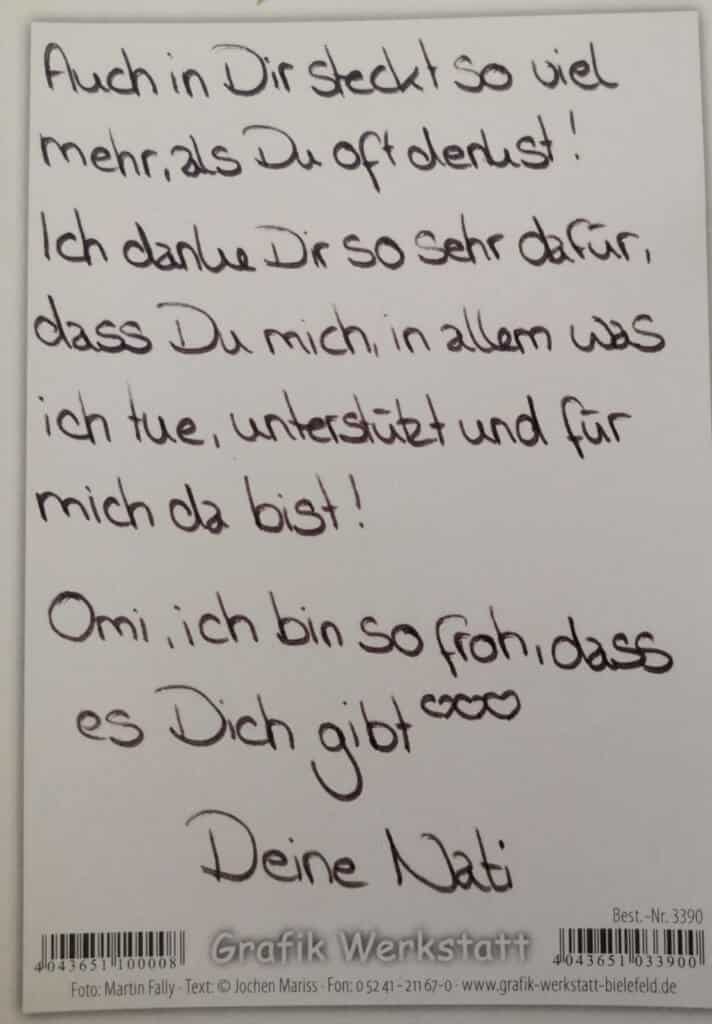 Auch in Dir steckt so viel
mehr, als Du oft denkst!
Ich danke Dir so sehr dafür,
dass Du mich, in allem was
ich tue, unterstützt und für
mich da bist!
Omi, ich bin so froh, dass
es Dich gibt ♡♡♡
Deine Nati
Best.-Nr. 3390
4 043651 100008 Grafik Werkstatt 4 043651 033900
Foto: Martin Fally · Text: © Jochen Mariss · Fon: 0 52 41 - 211 67-0 · www.grafik-werkstatt-bielefeld.de